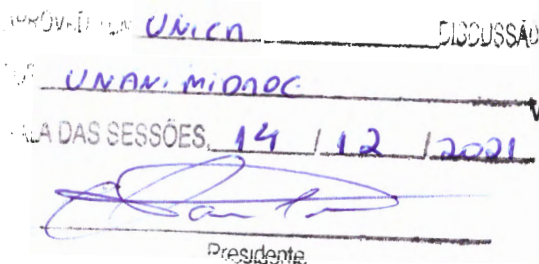 APROVADO EM UNICA DISCUSSÃO
POR UNANIMIDADE
SALA DAS SESSÕES, 14 / 12 / 2021
Presidente